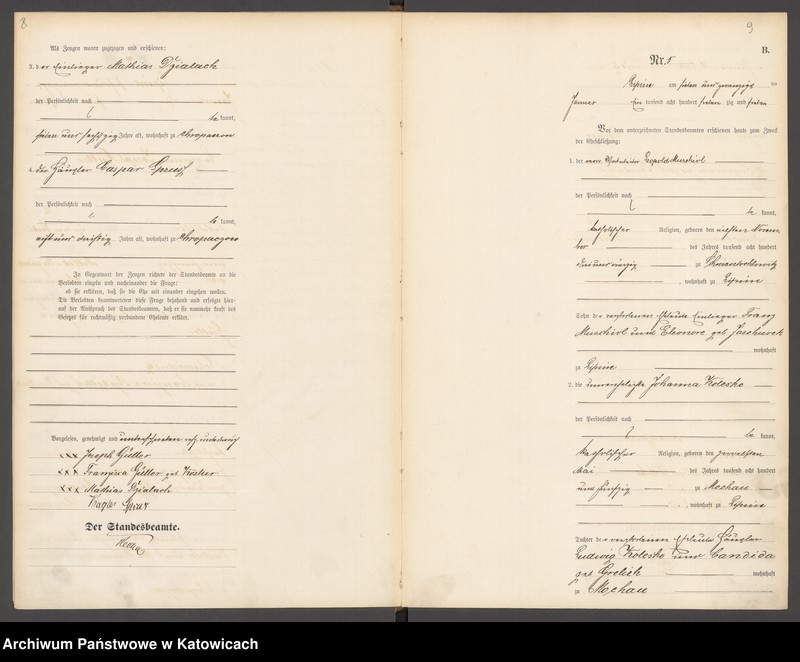 8
Als Zeugen waren zugezogen und erschienen:
3. der Einlieger Mathias Dzialach
der Persönlichkeit nach
be kannt,
sieben und sechzig Jahre alt, wohnhaft zu
4. der Häusler Caspar
der Persönlichkeit nach
be kannt,
acht und dreißig Jahre alt, wohnhaft zu
In Gegenwart der Zeugen richtete der Standesbeamte an die
Verlobten einzeln und nacheinander die Frage:
ob sie erklären, daß sie die Ehe mit einander eingehen wollen.
Die Verlobten beantworteten diese Frage bejahend und erfolgte hier-
auf der Ausspruch des Standesbeamten, daß er sie nunmehr kraft des
Gesetzes für rechtmäßig verbundene Eheleute erkläre.
Vorgelesen, genehmigt und unterschrieben resp. unterkreuzt
xxx Joseph Güttler
xxx Franziska Güttler geb.
xxx Mathias Dzialach
Der Standesbeamte.
9
B.
Nr. 5
Lipine am sieben und zwanzigs ten
Januar Ein tausend acht hundert sieben zig und sieben
Vor dem unterzeichneten Standesbeamten erschienen heute zum Zweck
der Eheschließung:
1. der Leopold
der Persönlichkeit nach
be kannt,
katholischer Religion, geboren den elften Novem
ber des Jahres tausend acht hundert
zu
, wohnhaft zu Lipine
Sohn der verstorbenen Eheleute Einlieger Franz
und Eleonore geb.
wohnhaft
zu Lipine
2. die unverehelichte Johanna Kolesko
der Persönlichkeit nach
be kannt,
katholischer Religion, geboren den zwölften
Mai des Jahres tausend acht hundert
und fünfzig zu Mochau
, wohnhaft zu Lipine
Tochter der verstorbenen Eheleute Häusler
Ludwig Kolesko und Candida
geb.
wohnhaft
zu Mochau
Archiwum Państwowe w Katowicach